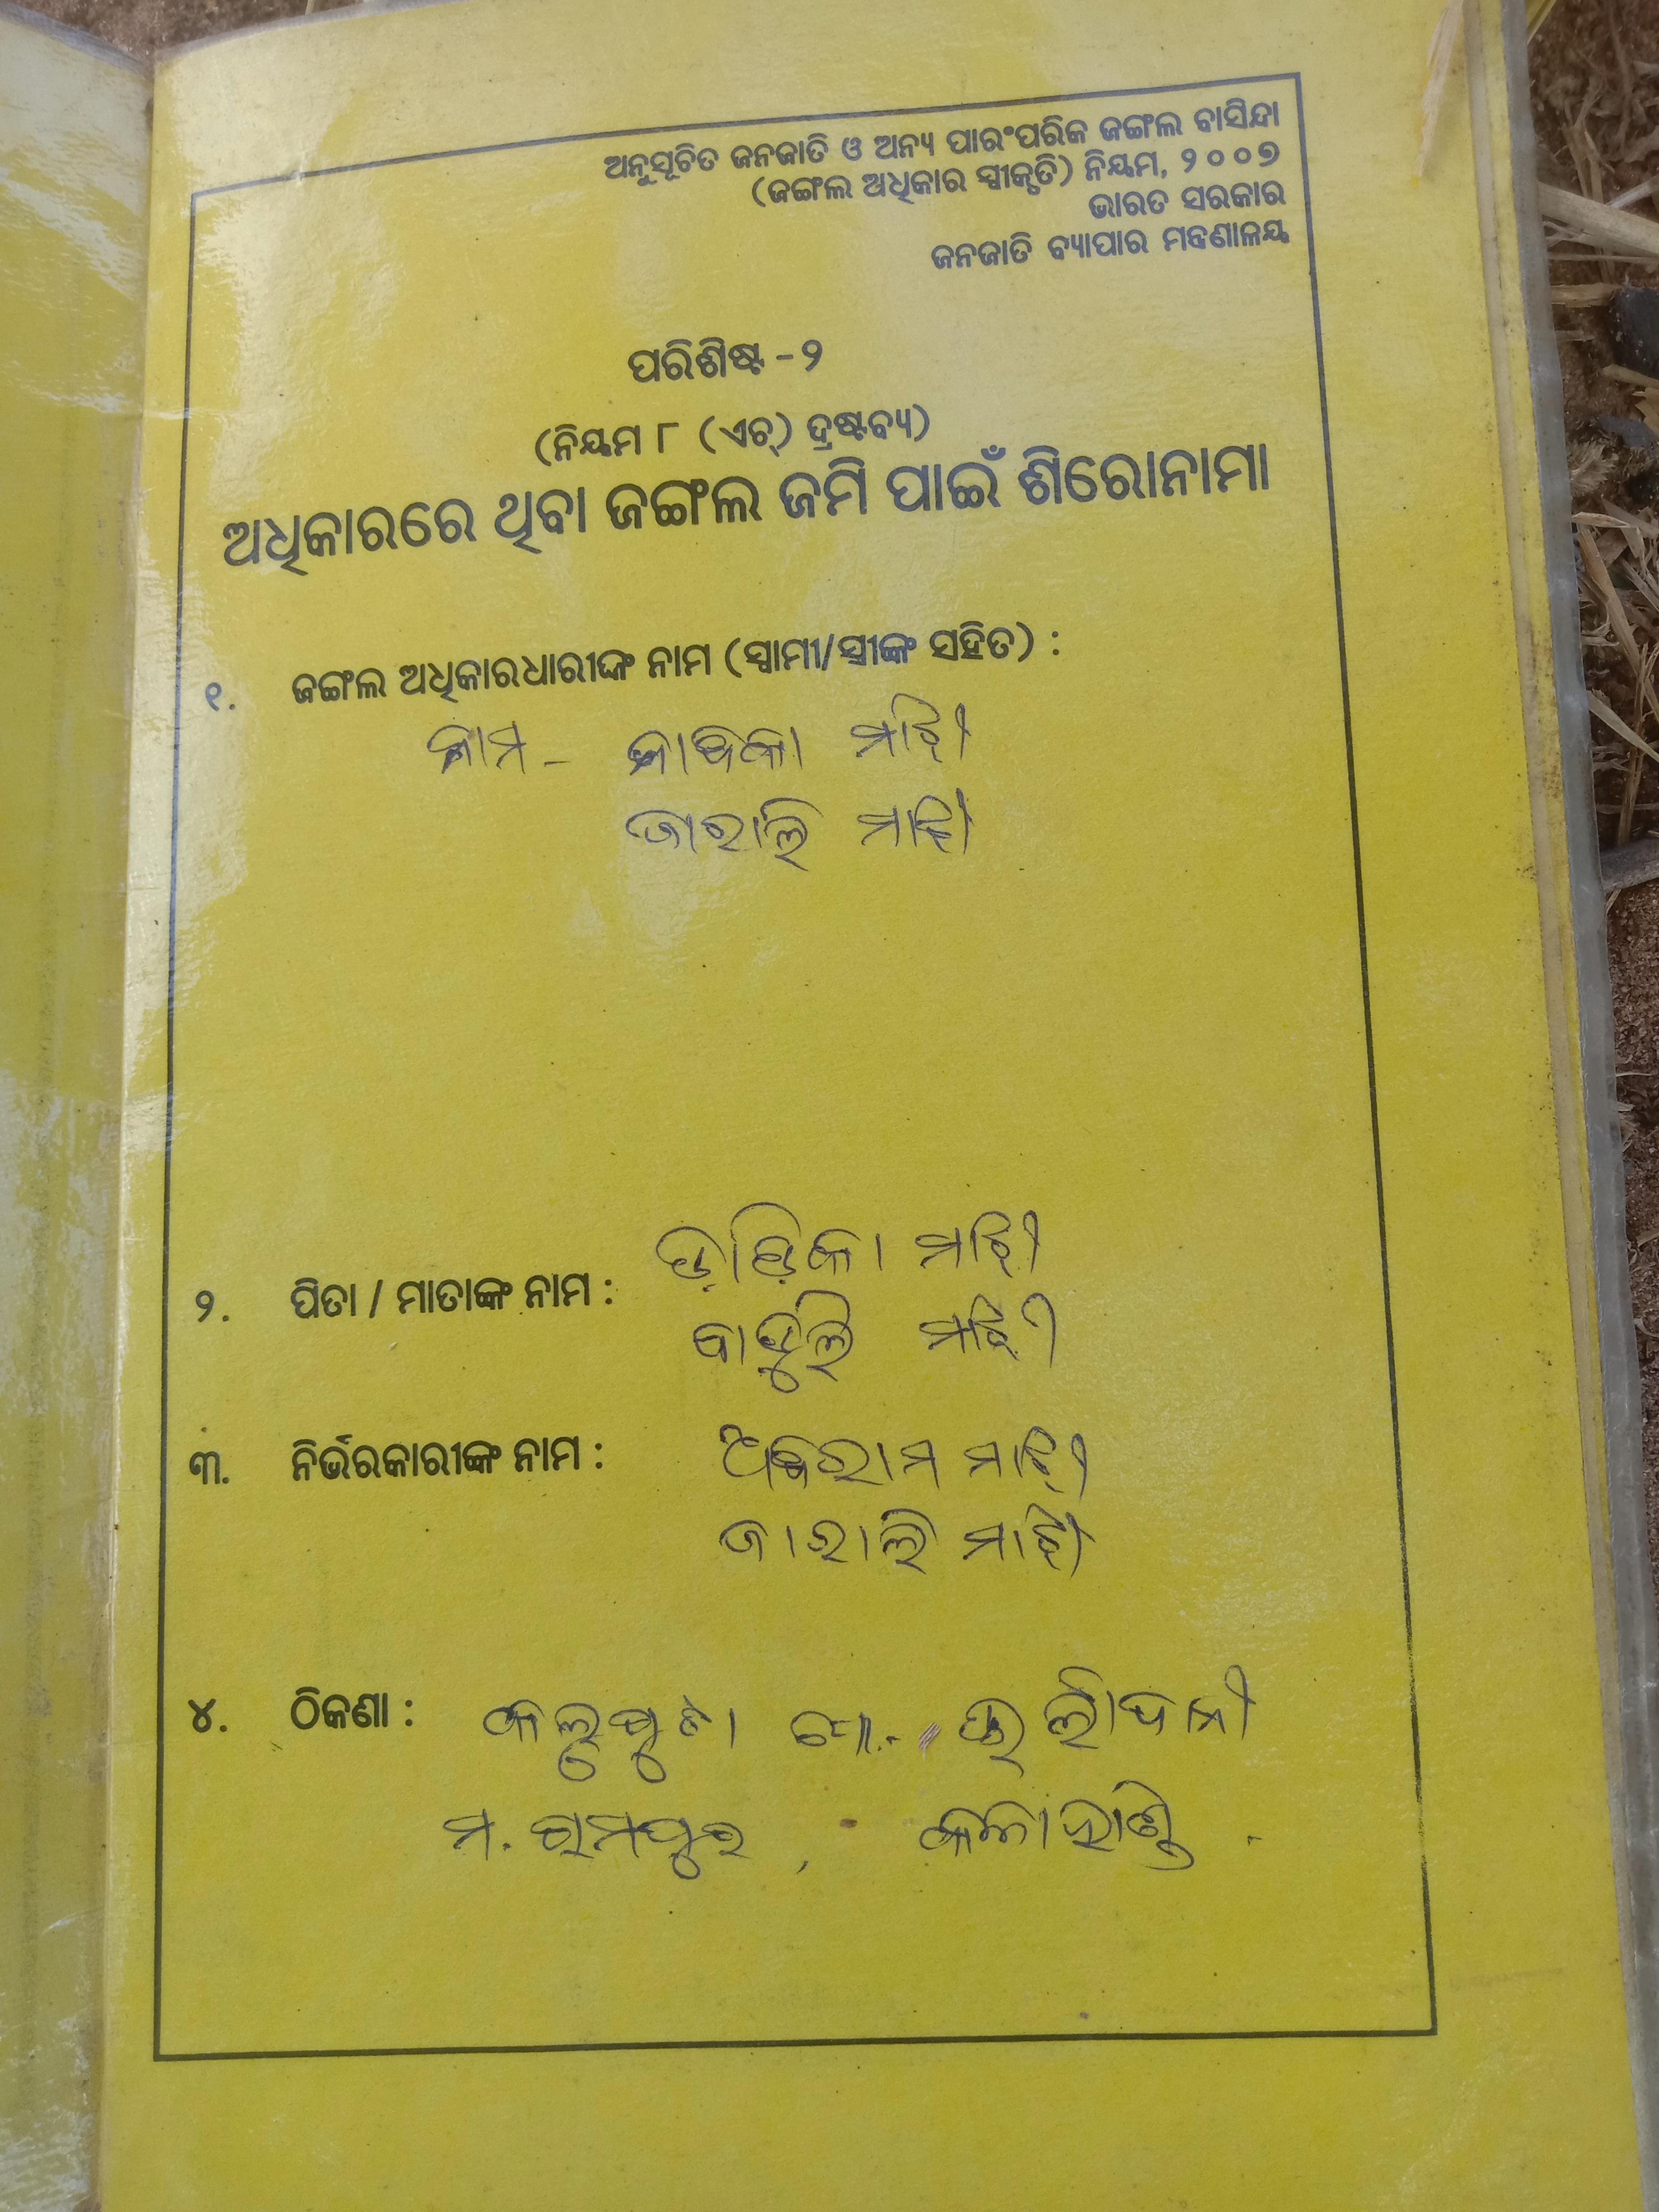 ଅନୁସୂଚିତ ଜନଜାତି ଓ ଅନ୍ୟ ପାରଂପରିକ ଜଙ୍ଗଲ ବାସିନ୍ଦା
(ଜଙ୍ଗଲ ଅଧିକାର ସ୍ୱୀକୃତି) ନିୟମ, ୨୦୦୭
ଭାରତ ସରକାର
ଜନଜାତି ବ୍ୟାପାର ମନ୍ତ୍ରଣାଳୟ
ପରିଶିଷ୍ଟ -୨
(ନିୟମ ୮ (ଏଚ୍) ଦ୍ରଷ୍ଟବ୍ୟ)
ଅଧିକାରରେ ଥିବା ଜଙ୍ଗଲ ଜମି ପାଇଁ ଶିରୋନାମା
୧. ଜଙ୍ଗଲ ଅଧିକାରଧାରୀଙ୍କ ନାମ (ସ୍ୱାମୀ/ସ୍ତ୍ରୀଙ୍କ ସହିତ) :
ନାମ - ମାଝି
ଜାରାଲି ମାଝି
ମାଝି
୨. ପିତା / ମାତାଙ୍କ ନାମ :
ମାଝି
୩. ନିର୍ଭରକାରୀଙ୍କ ନାମ : ମାଝି
ଜାରାଲି ମାଝି
୪. ଠିକଣା :
ମ. ରାମପୁର, କଳାହାଣ୍ଡି.